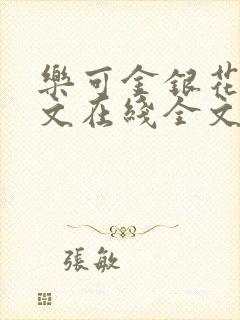 樂可金銀花
文在綫全文
張敏